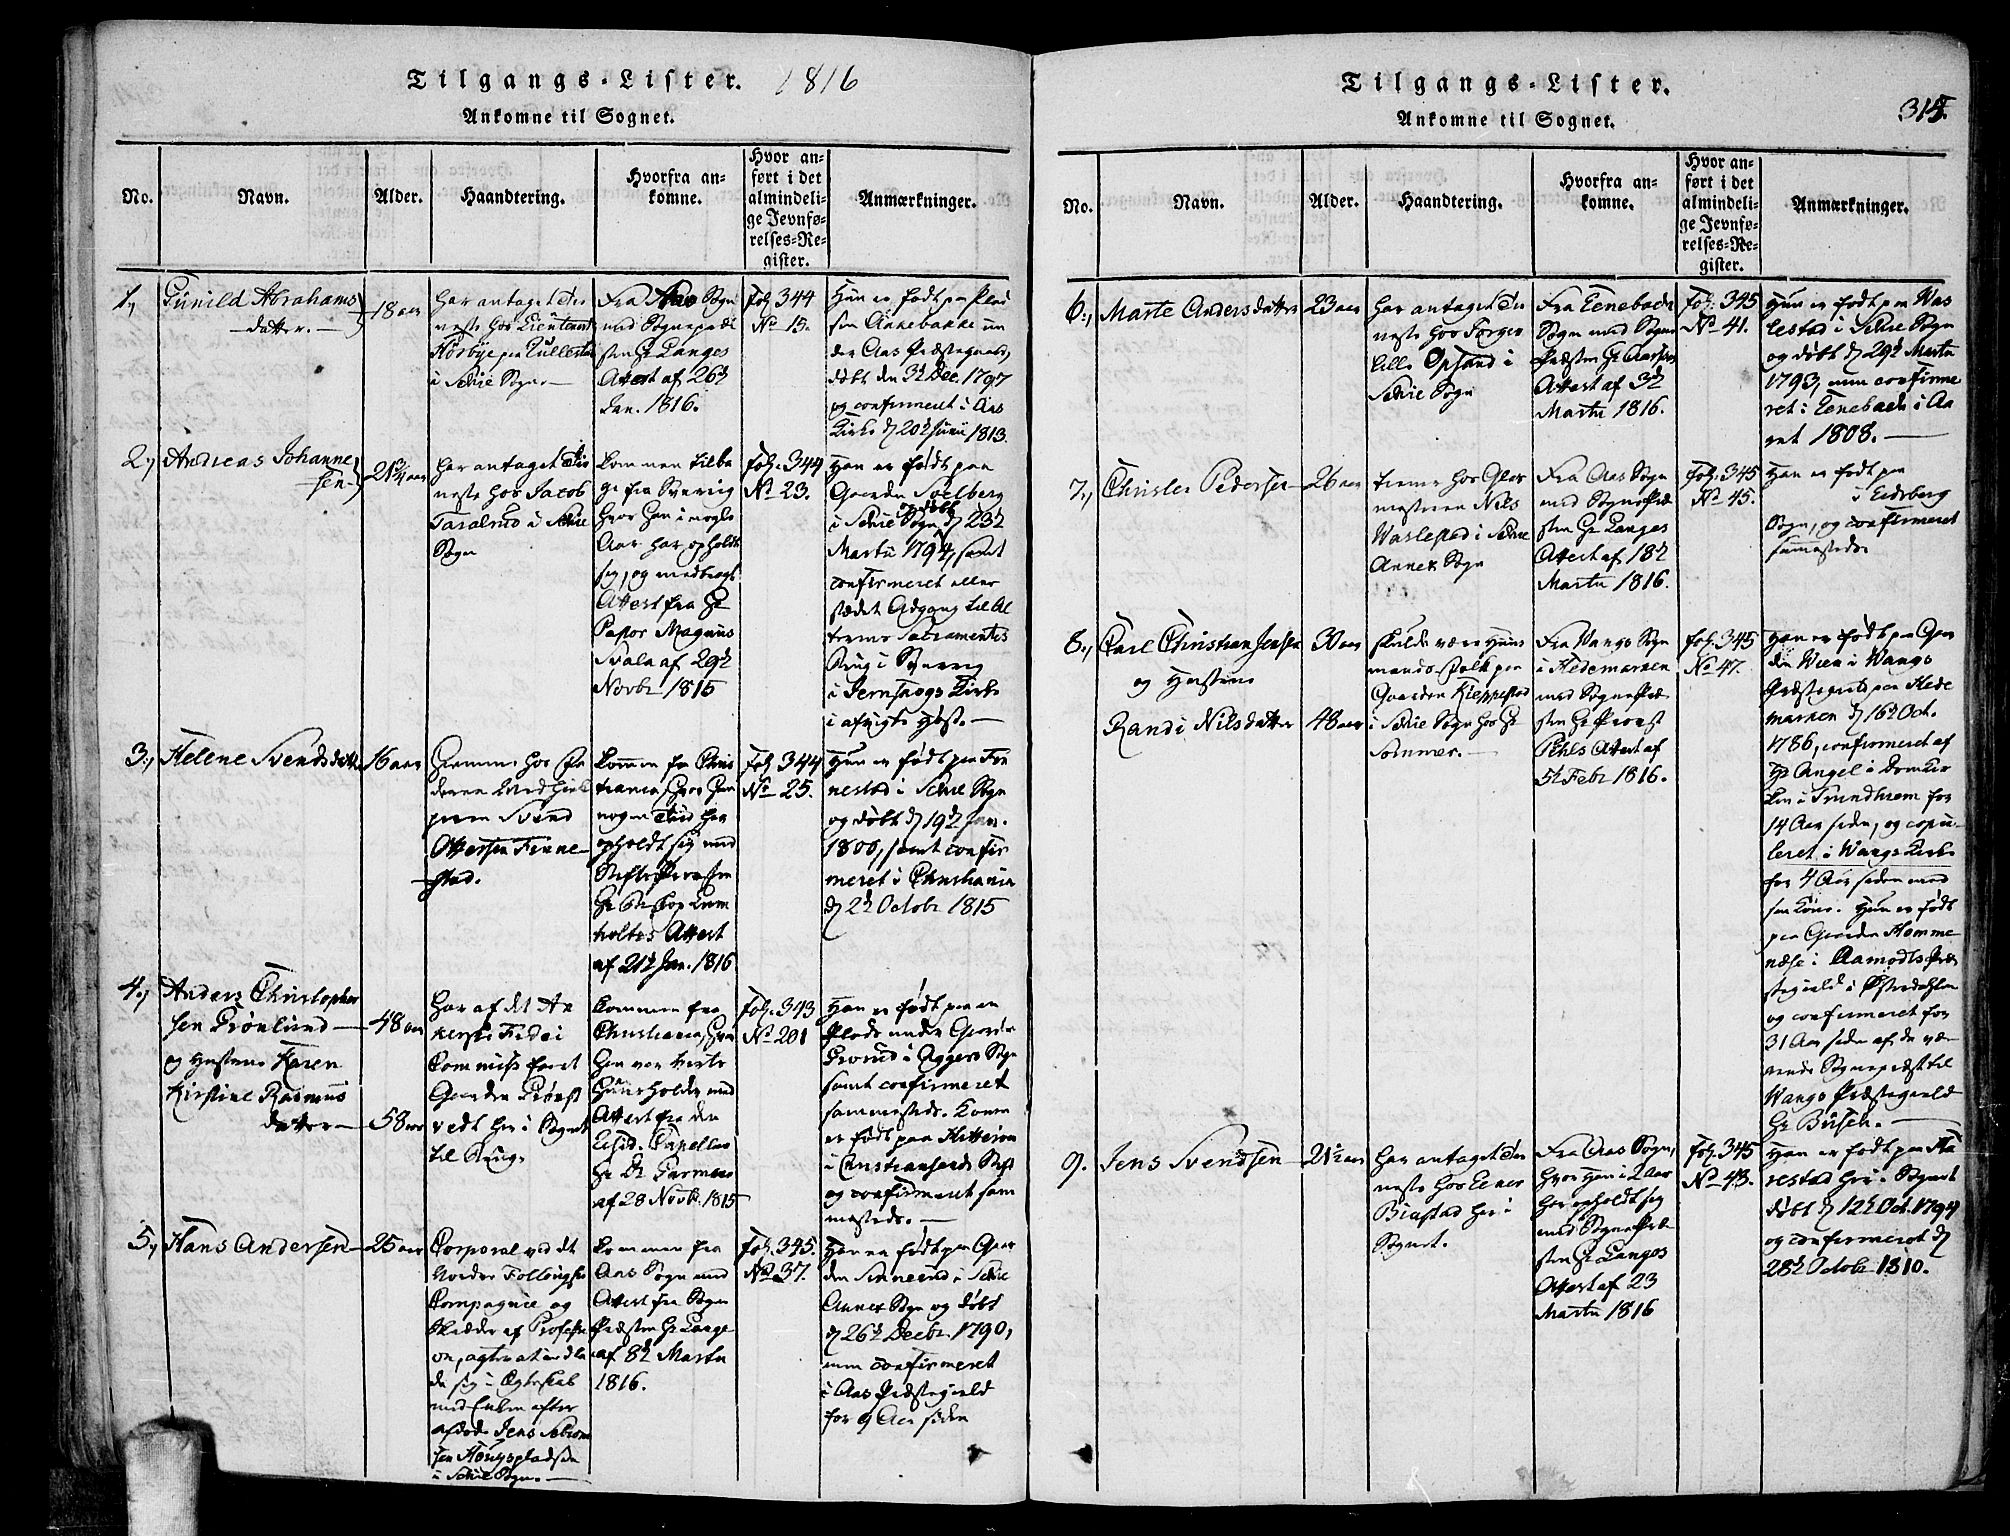 Tilgangs-Lister. 1816
Ankomne til Sognet.
No.
Navn.
Alder.
Haandtering.
Hvorfra an-
komne.
Hvor an-
ført i det
almindeli-
ge Jevnfø-
relses-Re-
gister.
Anmærkninger.
1.,
Gunild Abrahams
datter.
18 aar
har antaget Tie
neste hos Lieutenant
i Schie Sogn.
Fra Aas Sogn
med Sognepræ
sten Hr Langes
Attest af 26d
Jan. 1816.
Fol. 344
No 15.
Hun er født paa Plad
sen Annebakke un
der Aas Præstegaard,
døbt den 3d Dec. 1797
og confirmeret i Aas
Kirke d 20d Junii 1813.
2.,
Andreas Johanne
sen
21¾ aar
har antaget Tie
neste hos Jacob
Taralrud i Schie
Sogn
kommen tilba
ge fra Sverrig
hvor han i nogle
Aar har opholdt
sig, og medbragt
Attest fra Hr
Pastor Magnus
Svala af 29d
Novbr 1815
Fol. 344
No 23.
Han er født paa
Gaarden Solberg
i Schie Sogn og døbt d 23d
Martii 1794, samt
confirmeret eller
stædet Adgang til Al
terens Sacramentes
Brug i Sverrig
i Jernskogs Kirke
i afvigte Høst.
3.,
Helene Svendsdatter
16 aar
hiemme hos Fa
deren
Svend
Ottersen Finne
stad.
kommen fra Chris
tiania, hvor hun
nogen Tiid har
opholdt sig med
Hr Biskop
Attest
af 21d Jan. 1816
Fol. 344
No 25.
Hun er født paa Fin
nestad i Schie Sogn
og døbt d 19d Jan.
1800, samt confir
meret i Christiania
d 2d Octobr 1815
4.,
Anders Christopher
sen Grönlund
og Hustrue Karen
Kirstine Rasmus
datter
48 aar
58 aar
har af det An
kerske Fidei
Commiss faaet
Gaarden Grønst
vedt her i Sognet
til Brug.
kommen fra
Christiania, hvor
han var Verts
huusholder med
Attest fra den
resid. Capellan
Hr
af 28 Novbr. 1815
Fol. 343
No 201
Han er født paa en
Plads under Gaarden
i Aggers Sogn
samt confirmeret
sammesteds. Konen
er født paa Hitterøen
i Christiansands Stift
og confirmeret sam
mesteds.
5.,
Hans Andersen
25 aar
Corporal ved det
Nordre Follougske
Compagnie og
Skræder af Professi
on, agter at indla
de sig i Ægteskab
med Enken efter
afdøde Jens
sen
i Schie Sogn.
kommen fra
Aas Sogn med
Attest fra Sogne
Præsten Hr Lange
af 8d Martii
1816.
Fol. 345.
No 37.
Han er født paa Gaar
den Sinnerud i Schie
Annex Sogn og døbt
d 26d Decbr. 1790,
men confirmeret
i Aas Præstegield
for 9 Aar siden
Tilgangs-Lister.
Ankomne til Sognet.
315.
No.
Navn.
Alder.
Haandtering.
Hvorfra an-
komne.
Hvor an-
ført i det
almindeli-
ge Jevnfø-
relses-Re-
gister.
Anmærkninger.
6.,
Marte Andersdatter
23 aar
har antaget Tie
neste hos Jørgen
Lille Opsand i
Schie Sogn
Fra Enebach
Sogn med Sogne
Præsten Hr
Attest af 3d
Martii 1816.
Fol. 345
No 41.
Hun er født paa Was
lestad i Schie Sogn
og døbt d 29d Martii
1793, men confirme
ret i Enebach i Aa
ret 1808.
7.,
Christen Pedersen
26 aar
tiener hos Glar
mesteren Nils
Waslestad i Schie
Annex Sogn
Fra Aas Sogn
med SognePræ
sten Hr Langes
Attest af 18d
Martii 1816.
Fol. 345
No 45.
Han er født paa
i Eidsberg
Sogn, og confirmeret
sammesteds
8.,
Carl Christian Jensen
og Hustrue
Randi Nilsdatter
30 aar
48 aar
skulde være Huus
mands Folk paa
Gaarden Kieppestad
i Schie Sogn hos Hr
Sommer.
Fra Wangs Sogn
i Hedemarken
med SognePræ
sten Hr Provst
Pihls Attest af
5d Febr 1816.
Fol. 345
No 47.
Han er født paa Gaar
den Wien i Wangs
Præstegield paa Hede
marken d 16d Oct.
1786, confirmeret af
Hr Angel i Domkir
ken i Trundhiem for
14 Aar siden, og copu-
leret i Wangs Kirke
for 4 Aar siden med
sin Kone. Hun er født
paa Gaarden Homme
næse i Aamodts Præ
stegield i Østerdahlen
og confirmeret for
31 Aar siden af da væ
rende Sognepræst til
Wangs Præstegield
Hr Busch.
9.
Jens Svendsen
21½ aar
har antaget Tie
neste hos Einer
Biastad her i
Sognet.
Fra Aas Sogn,
hvor han i 2 Aar
har opholdt sig
med SognePræ
sten Hr Langes
Attest af 23
Martii 1816
Fol. 345
No 43.
Han er født paa Ha
restad her i Sognet
døbt d 12d Oct. 1794
og confirmeret d
28d Octobr 1810.